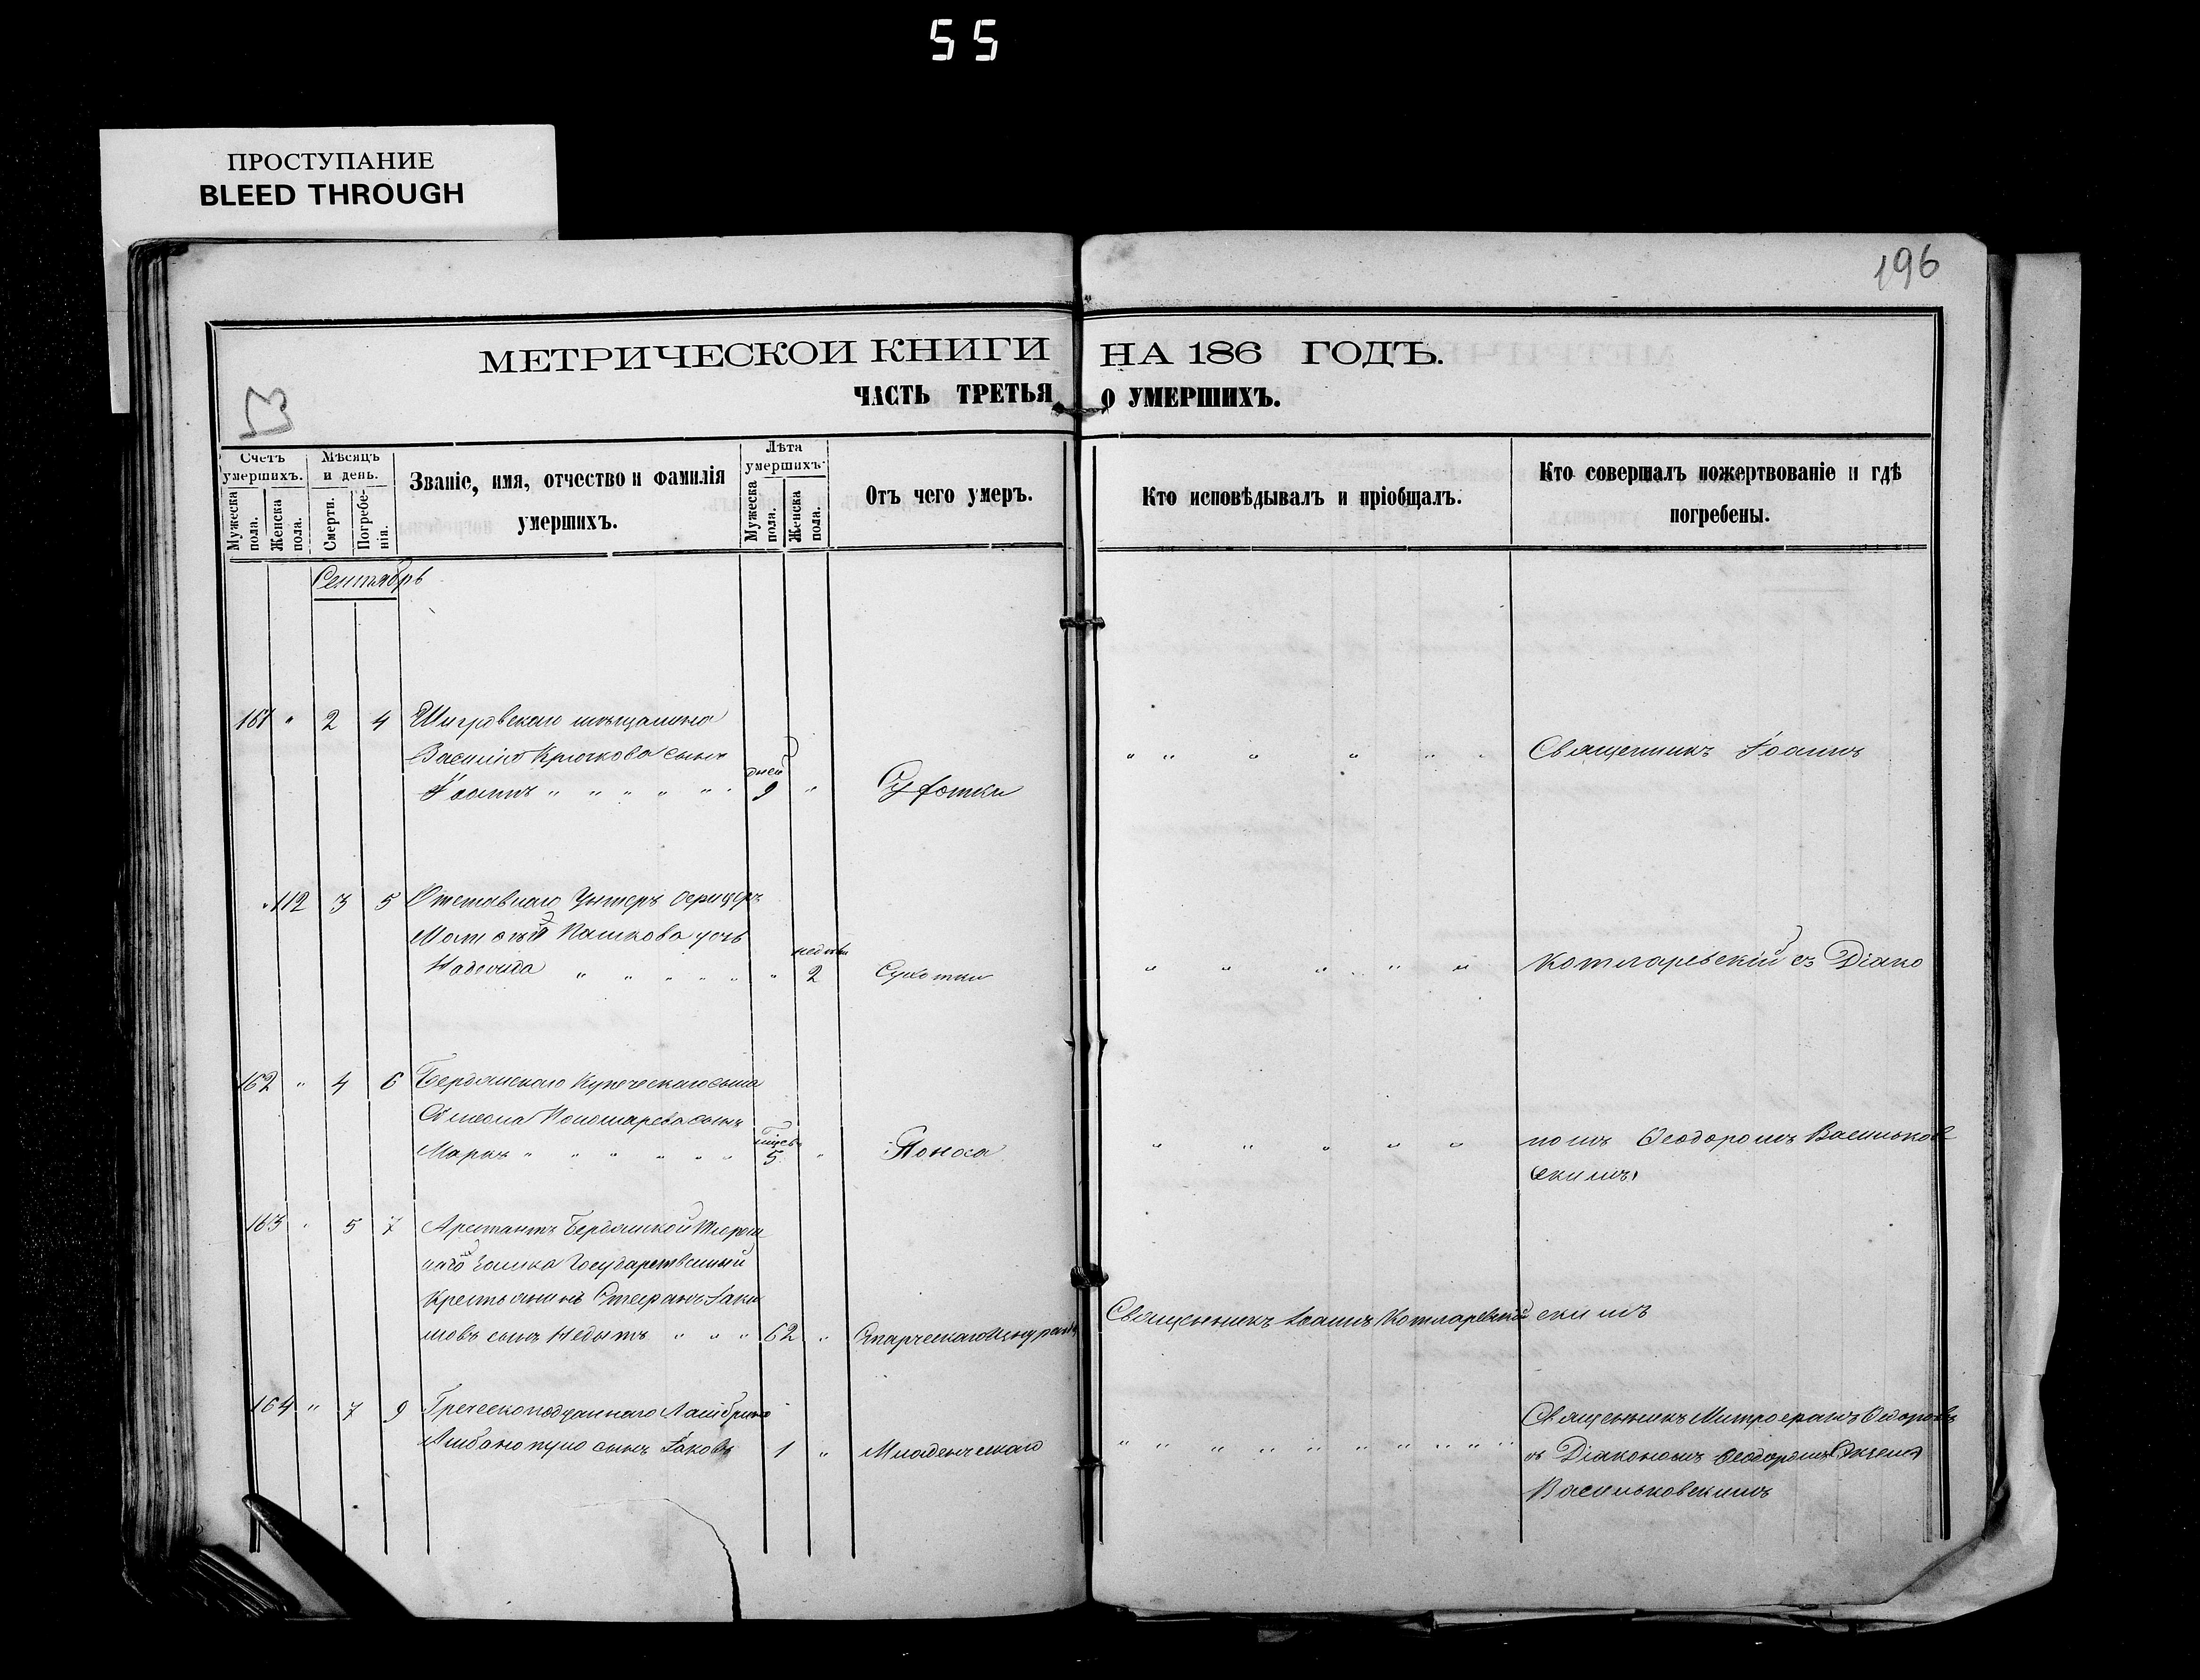 55
ПРОСТУПАНИЕ
BLEED THROUGH
196
МЕТРИЧЕСКОИ КНИГИ НА 186 ГОДЪ.
ЧАСТЬ ТРЕТЬЯ О УМЕРШИХЪ.
Счетъ умершихъ.
Мужеска пола.
Женска пола.
Мѣсяцъ и день.
Смерти.
Погребенія.
Званіе, имя, отчество и фамилія
умершихъ.
Лѣта умершихъ.
Мужеска пола.
Женска пола.
Отъ чего умеръ.
Кто исповѣдывалъ и пріобщалъ.
Кто совершалъ пожертвованіе и гдѣ
погребены.
Сентябрь
161 " 2 4 Щигровскаго мѣщанина
Василія Крючкова сынъ
Іоаннъ " " " " " " дней 9 "
Священникъ Іоаннъ
112 3 5 Отставнаго Унтеръ Офицера
Пашкова дочь
Надежда " " " " " " недѣли 2 Сухотки
Котляревскій съ Діако
162 " 4 6 Бердянскаго Купеческаго сына
Симеона Пономарева сынъ
Маркъ " " " " " " 5 " Поноса
номъ Ѳеодоромъ Васильков
скимъ
163 " 5 7 Арестантъ Бердянской Тюрем
наго Замка Государственный
Крестьянинъ Стефанъ Іаки
мовъ сынъ " " " 62 "
Священникъ Іоаннъ Котляревскій
скимъ
164 " 7 9 Греческоподданнаго
сынъ Іаковъ 1 " Младенческаго
Священникъ Митрофанъ
съ Діакономъ Ѳеодоромъ
Васильковскимъ